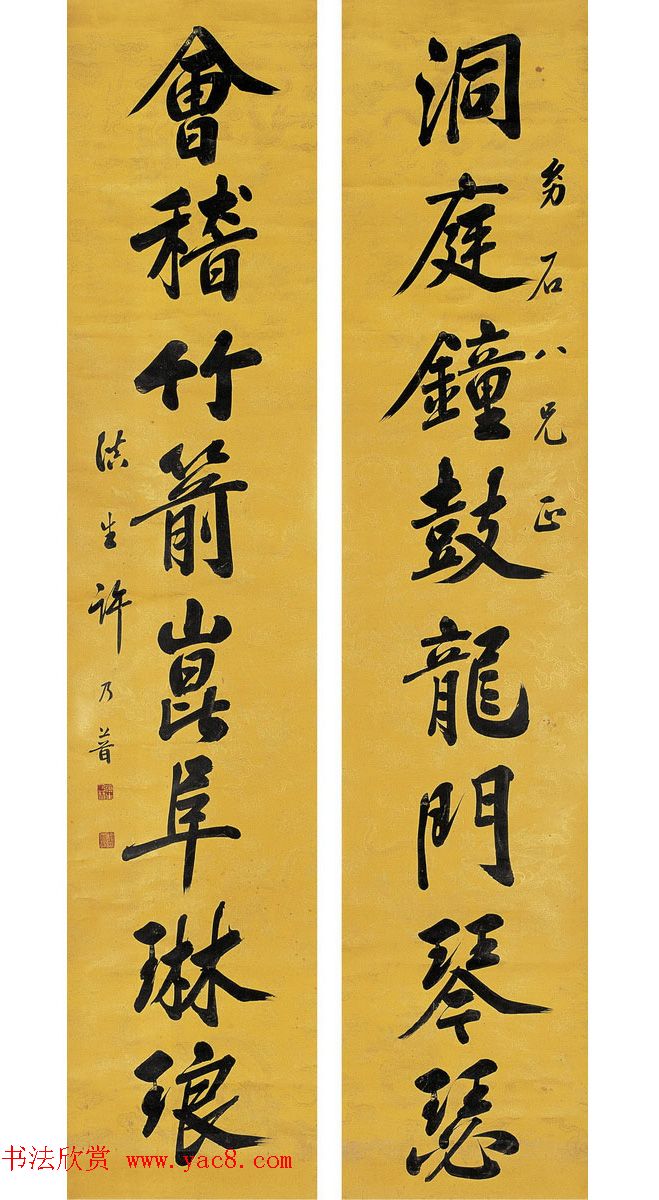 洞庭鐘鼓龍門琴瑟
石八兄正
會稽竹箭崑阜琳琅
滇生許乃普
书法欣赏 www.yac8.com